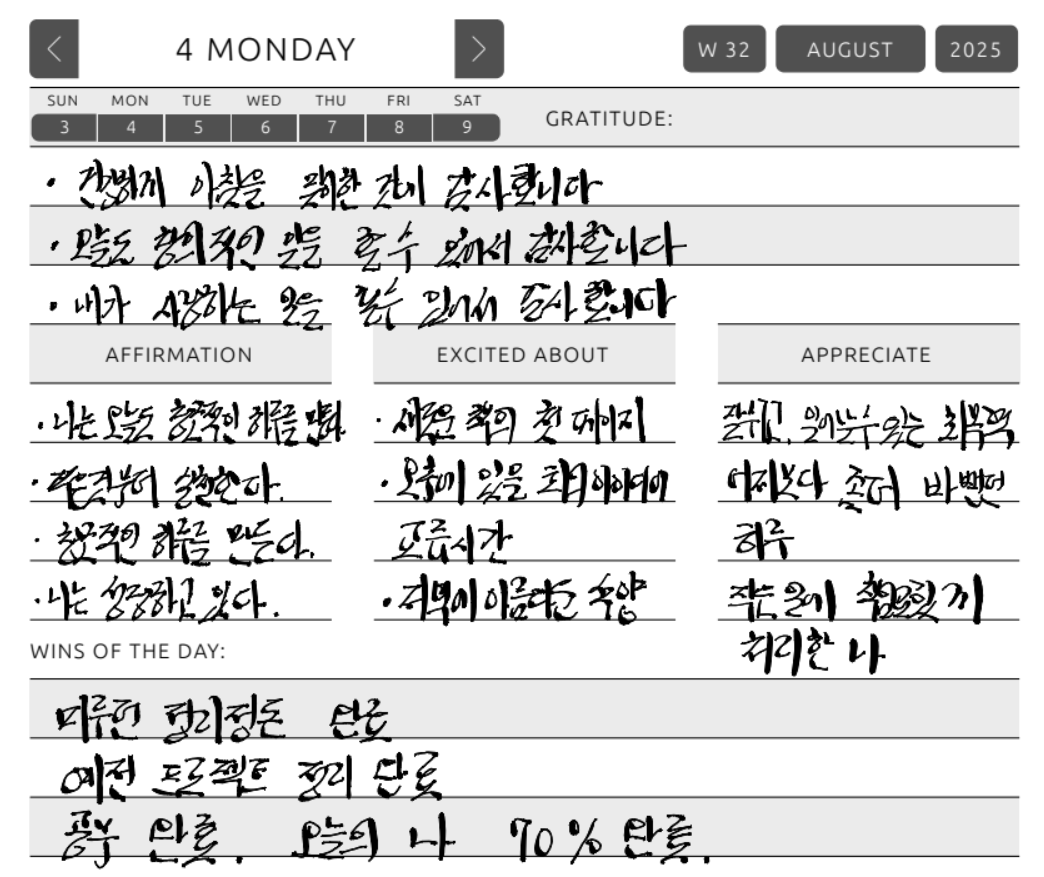 4 MONDAY
W 32 AUGUST 2025
SUN MON TUE WED THU FRI SAT
3 4 5 6 7 8 9
GRATITUDE:
· 간명하게 아침을 취한 것에 감사합니다
· 오늘도 창의적인 일을 할 수 있어서 감사합니다
· 내가 사랑하는 일을 할 수 있어서 감사합니다
AFFIRMATION
· 나는 오늘도 창조적인 하루를 만든다.
· 작은것부터 실천한다.
· 창조적인 하루를 만든다.
· 나는 성장하고 있다.
EXCITED ABOUT
· 새로운 책의 첫 페이지
· 오후에 있을 회의 아이디어
교류시간
· 저녁에 아름다운 석양
APPRECIATE
잘 쉬고, 일어날수 있는 회복력
어제보다 좀더 바빴던
하루
작은 일에 책임감있게
처리한 나
WINS OF THE DAY:
미루던 정리정돈 완료
예전 프로젝트 정리 완료
공부 완료. 오늘의 나 70% 완료.